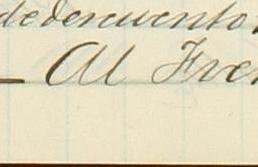 de descuento
— Al Fre